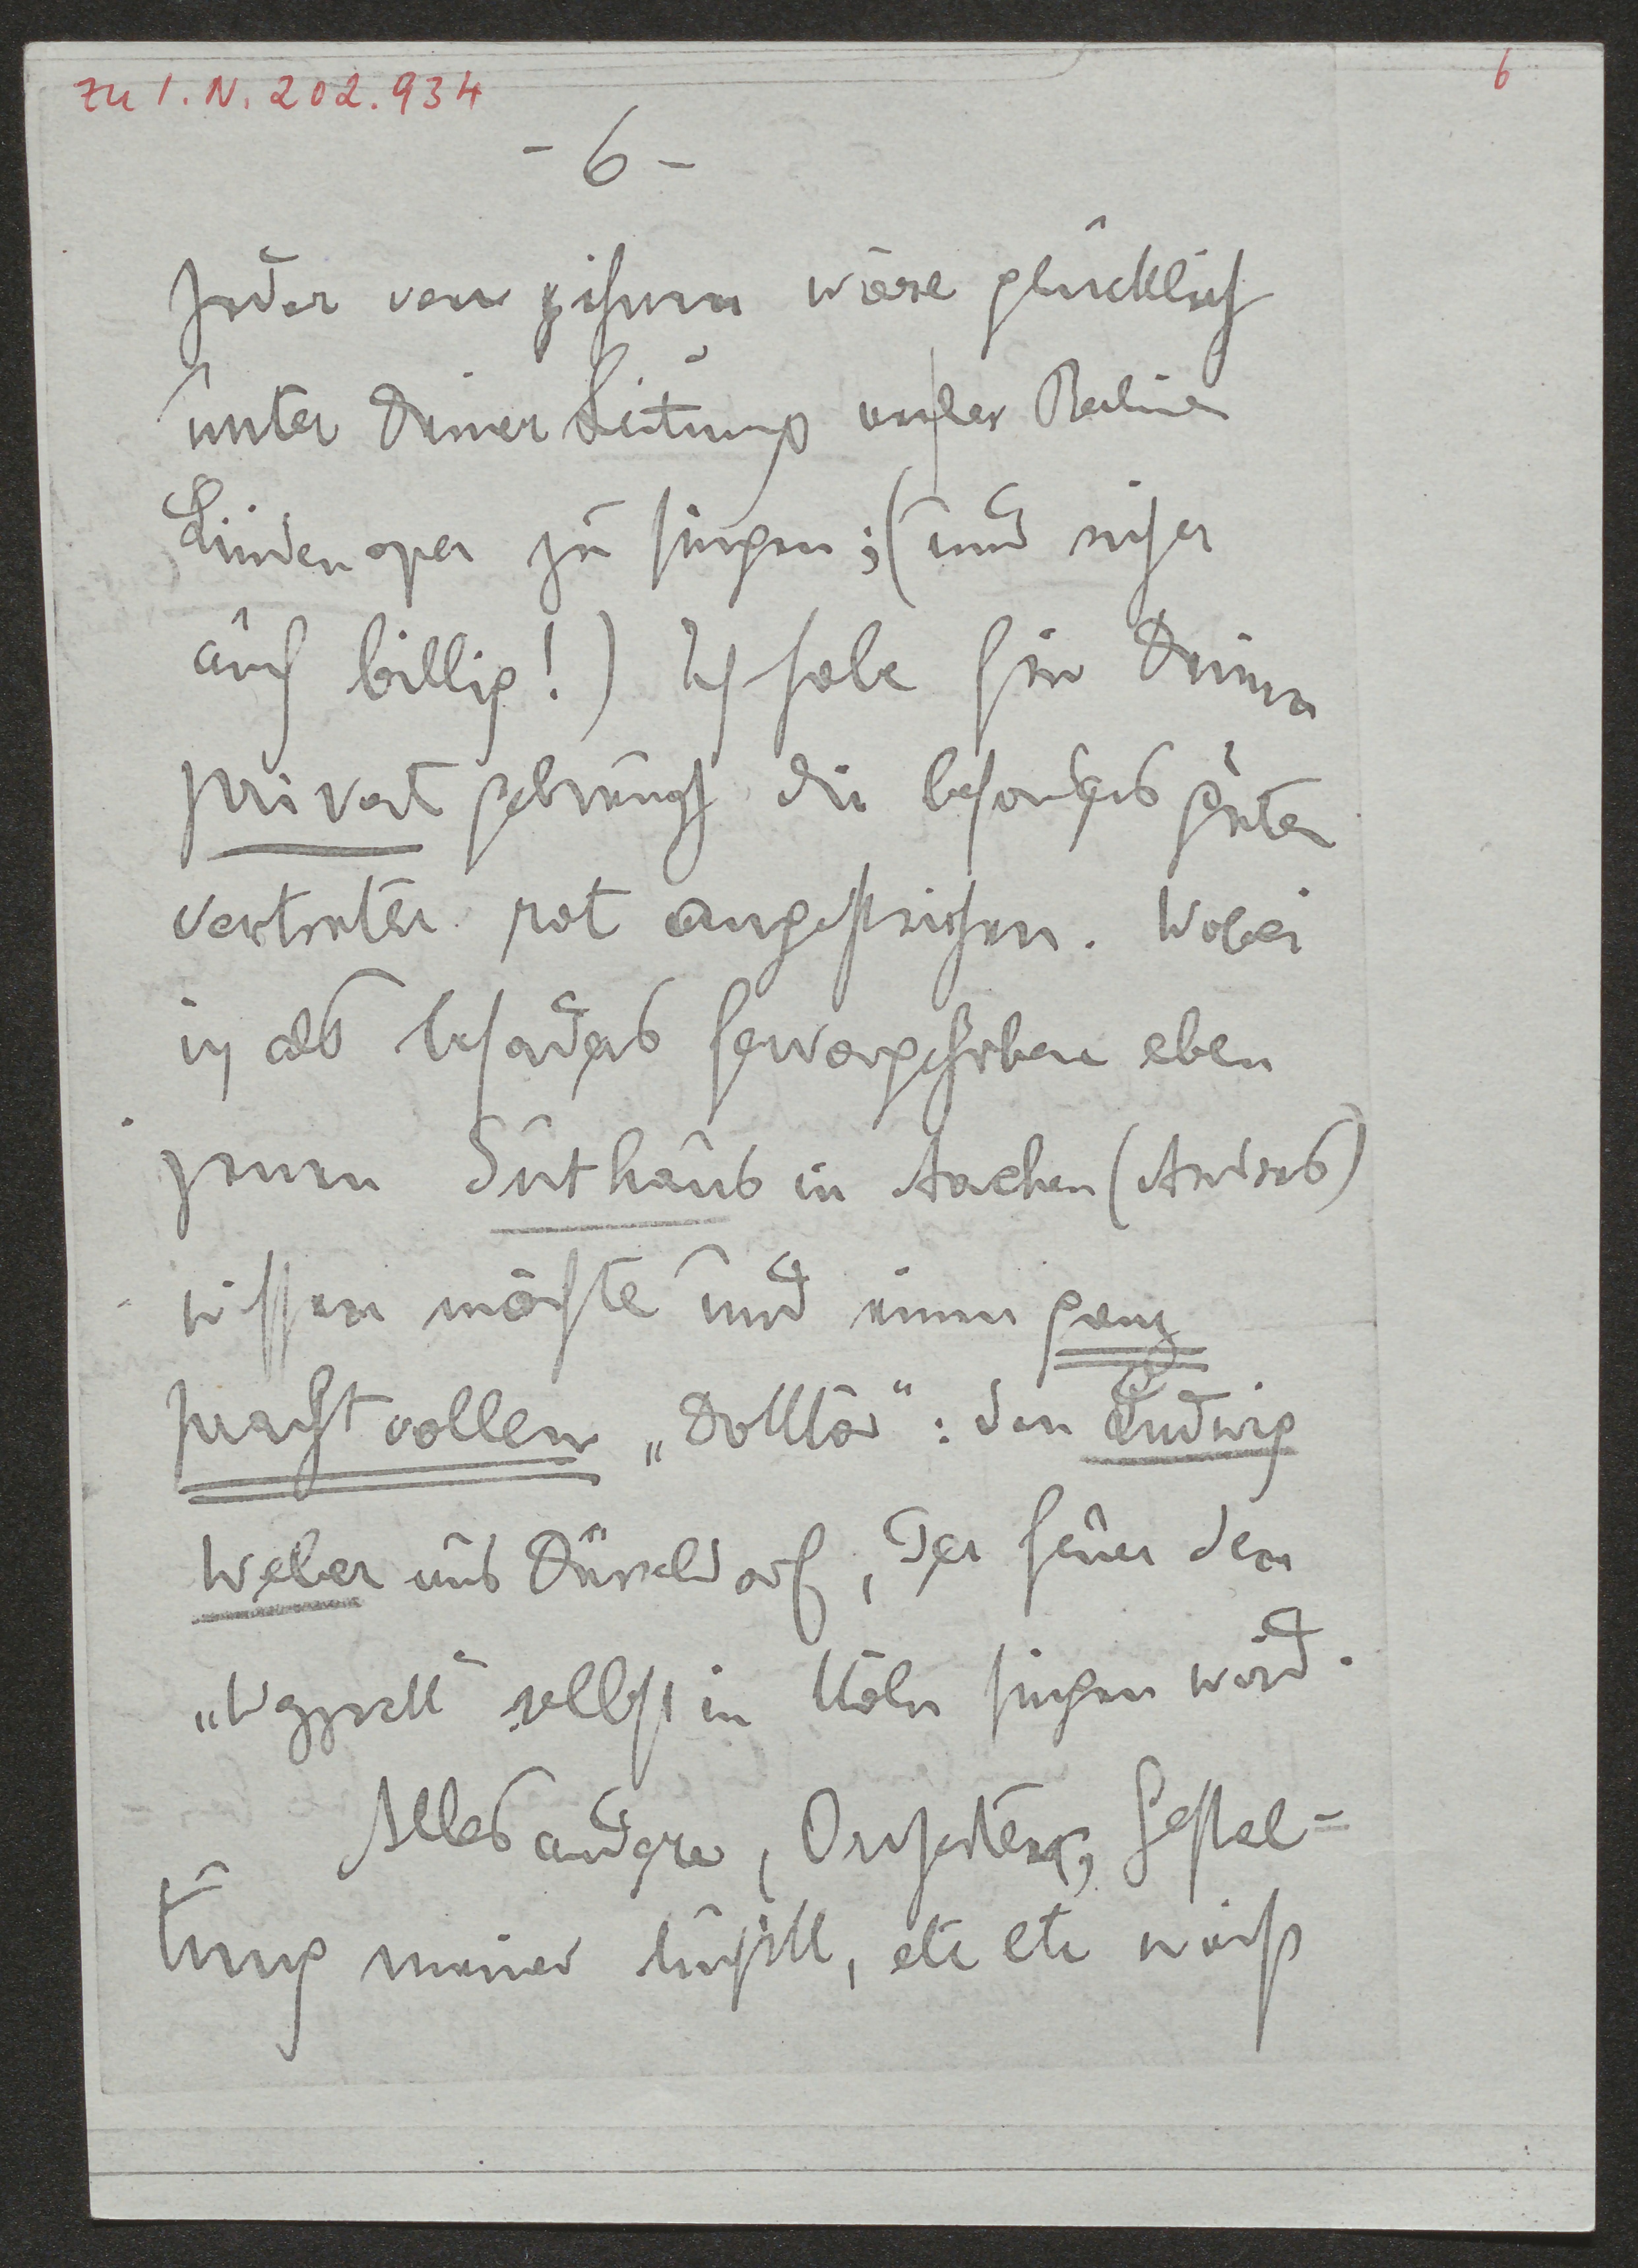 zu I.N. 202.934
6
- 6 -
Jeder von ihnen wäre glücklich
unter Deiner Leitung an der Berliner
Lindenoper zu singen; (und sicher
auch billig!) Ich habe für Deinen
privat gebrauch die besonders guten
Vertreter rot angestrichen. Wobei
ich als besonders hervorgehoben eben
jenen Suthaus in Aachen (Andres)
wissen möchte und einen ganz
prachtvollen „Doktor“: den Ludwig
Weber aus Düsseldorf, der heuer den
„Wozzeck“ selbst in Köln singen wird.
Alles andere, Orchester, Gestal=
tung meiner Musik, etc etc weiß